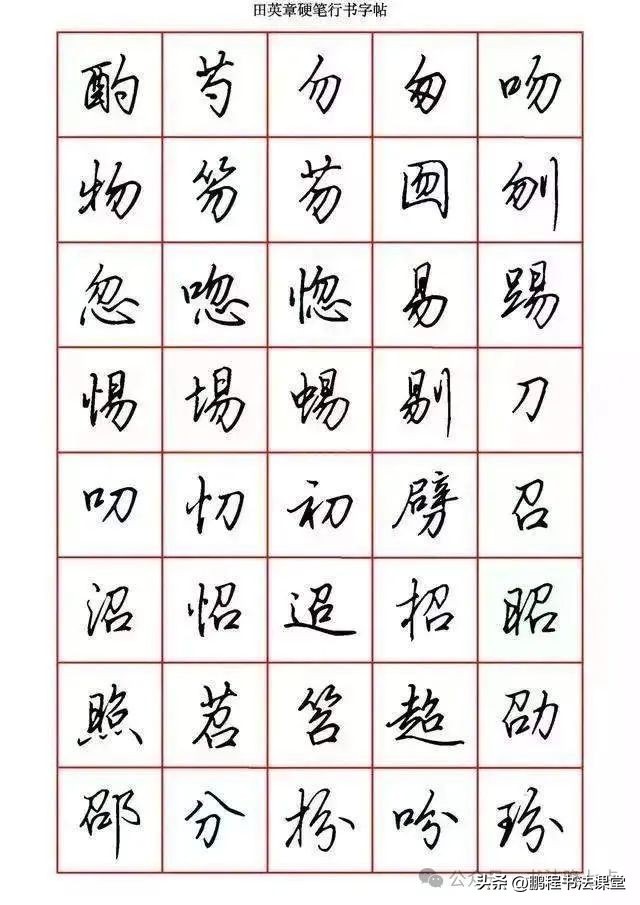 田英章硬笔行书字帖
酌芍勿匆吻
物笏芴囫刎
忽唿惚易踢
惕埸蜴剔刀
叨忉初劈召
沼怊迢招昭
照苕笤超劭
邵分扮吩玢
头条@鹏程书法课堂